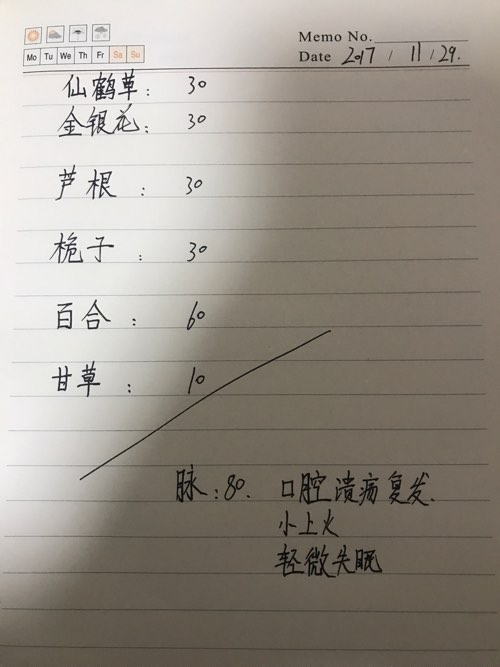 Memo No.
Mo Tu We Th Fr Sa Su
Date 2017 / 11 / 29.
仙鹤草： 30
金银花： 30
芦根： 30
桅子： 30
百合： 60
甘草： 10
脉：80. 口腔溃疡复发.
小上火
轻微失眠